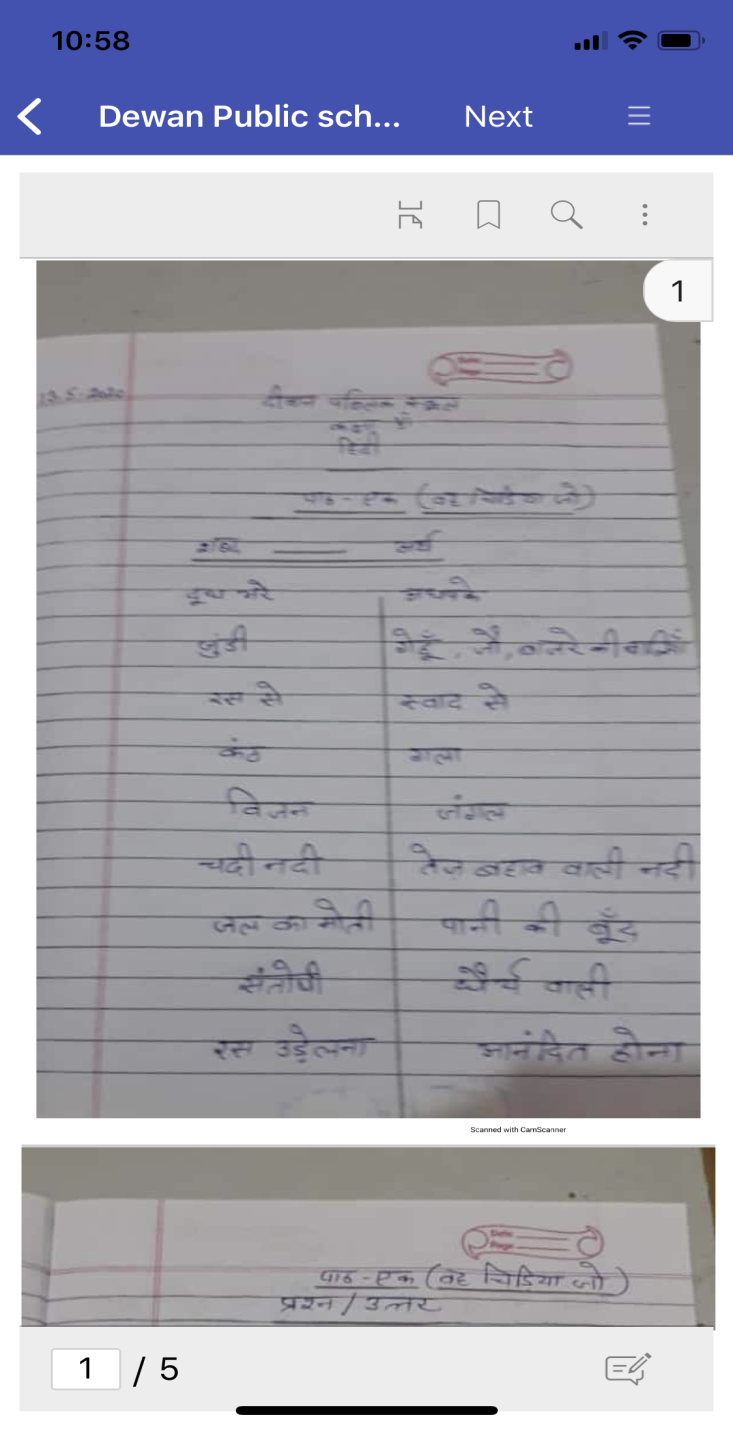 10:58
Dewan Public sch... Next
1
13.5.2020
दीवान पब्लिक स्कूल
कक्षा
हिंदी
पाठ - एक (वह चिड़िया जो)
शब्द अर्थ
दूध भरे अधपके
जुंडी गेहूँ, जौ, बाजरे की बालियाँ
रस से स्वाद से
कंठ गला
विजन जंगल
चढ़ी नदी तेज बहाव वाली नदी
जल का मोती पानी की बूँद
संतोषी धैर्य वाली
रस उड़ेलना आनंदित होना
Scanned with CamScanner
पाठ - एक (वह चिड़िया जो)
प्रश्न / उत्तर
1 / 5